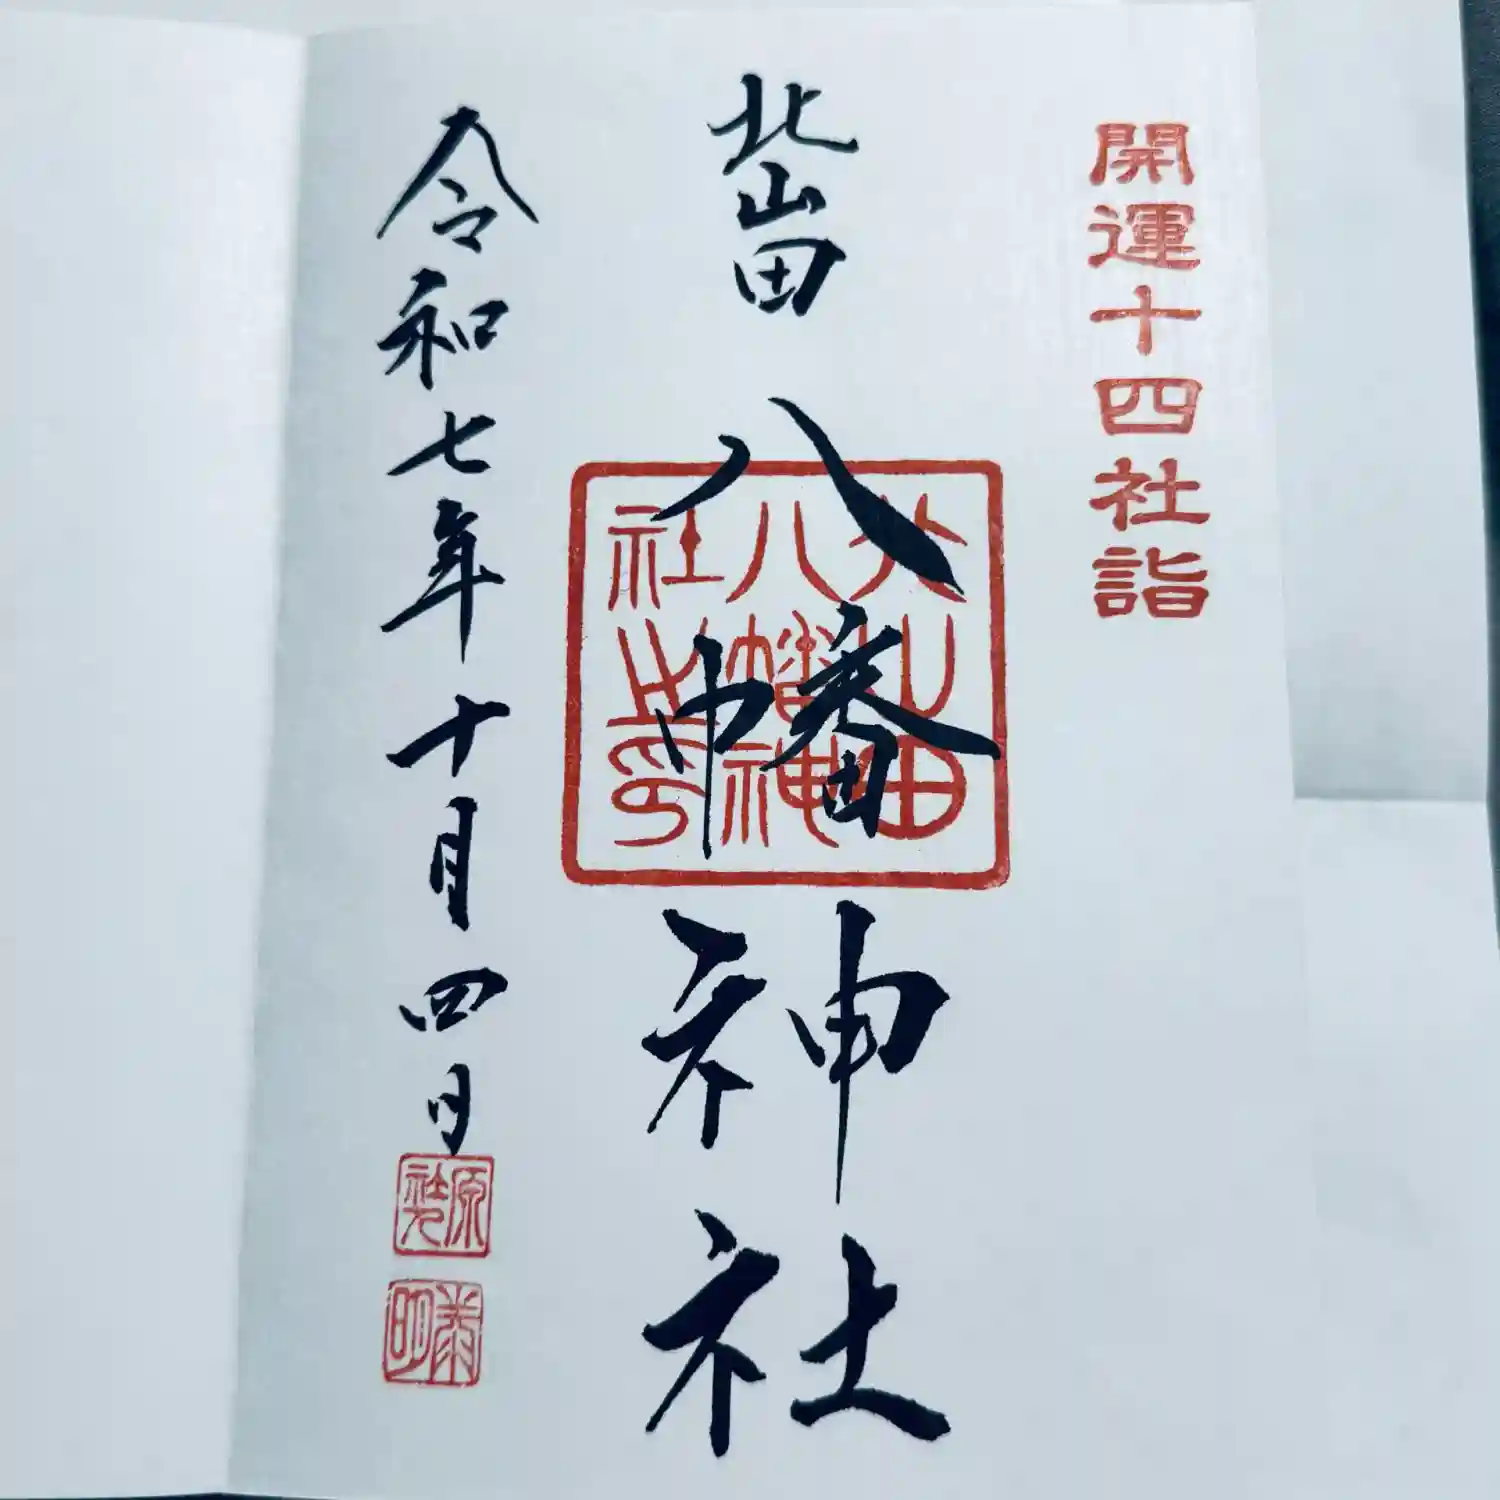 開運十四社詣
北山田八幡神社
北山田
八幡神
社之印
令和七年十月四日